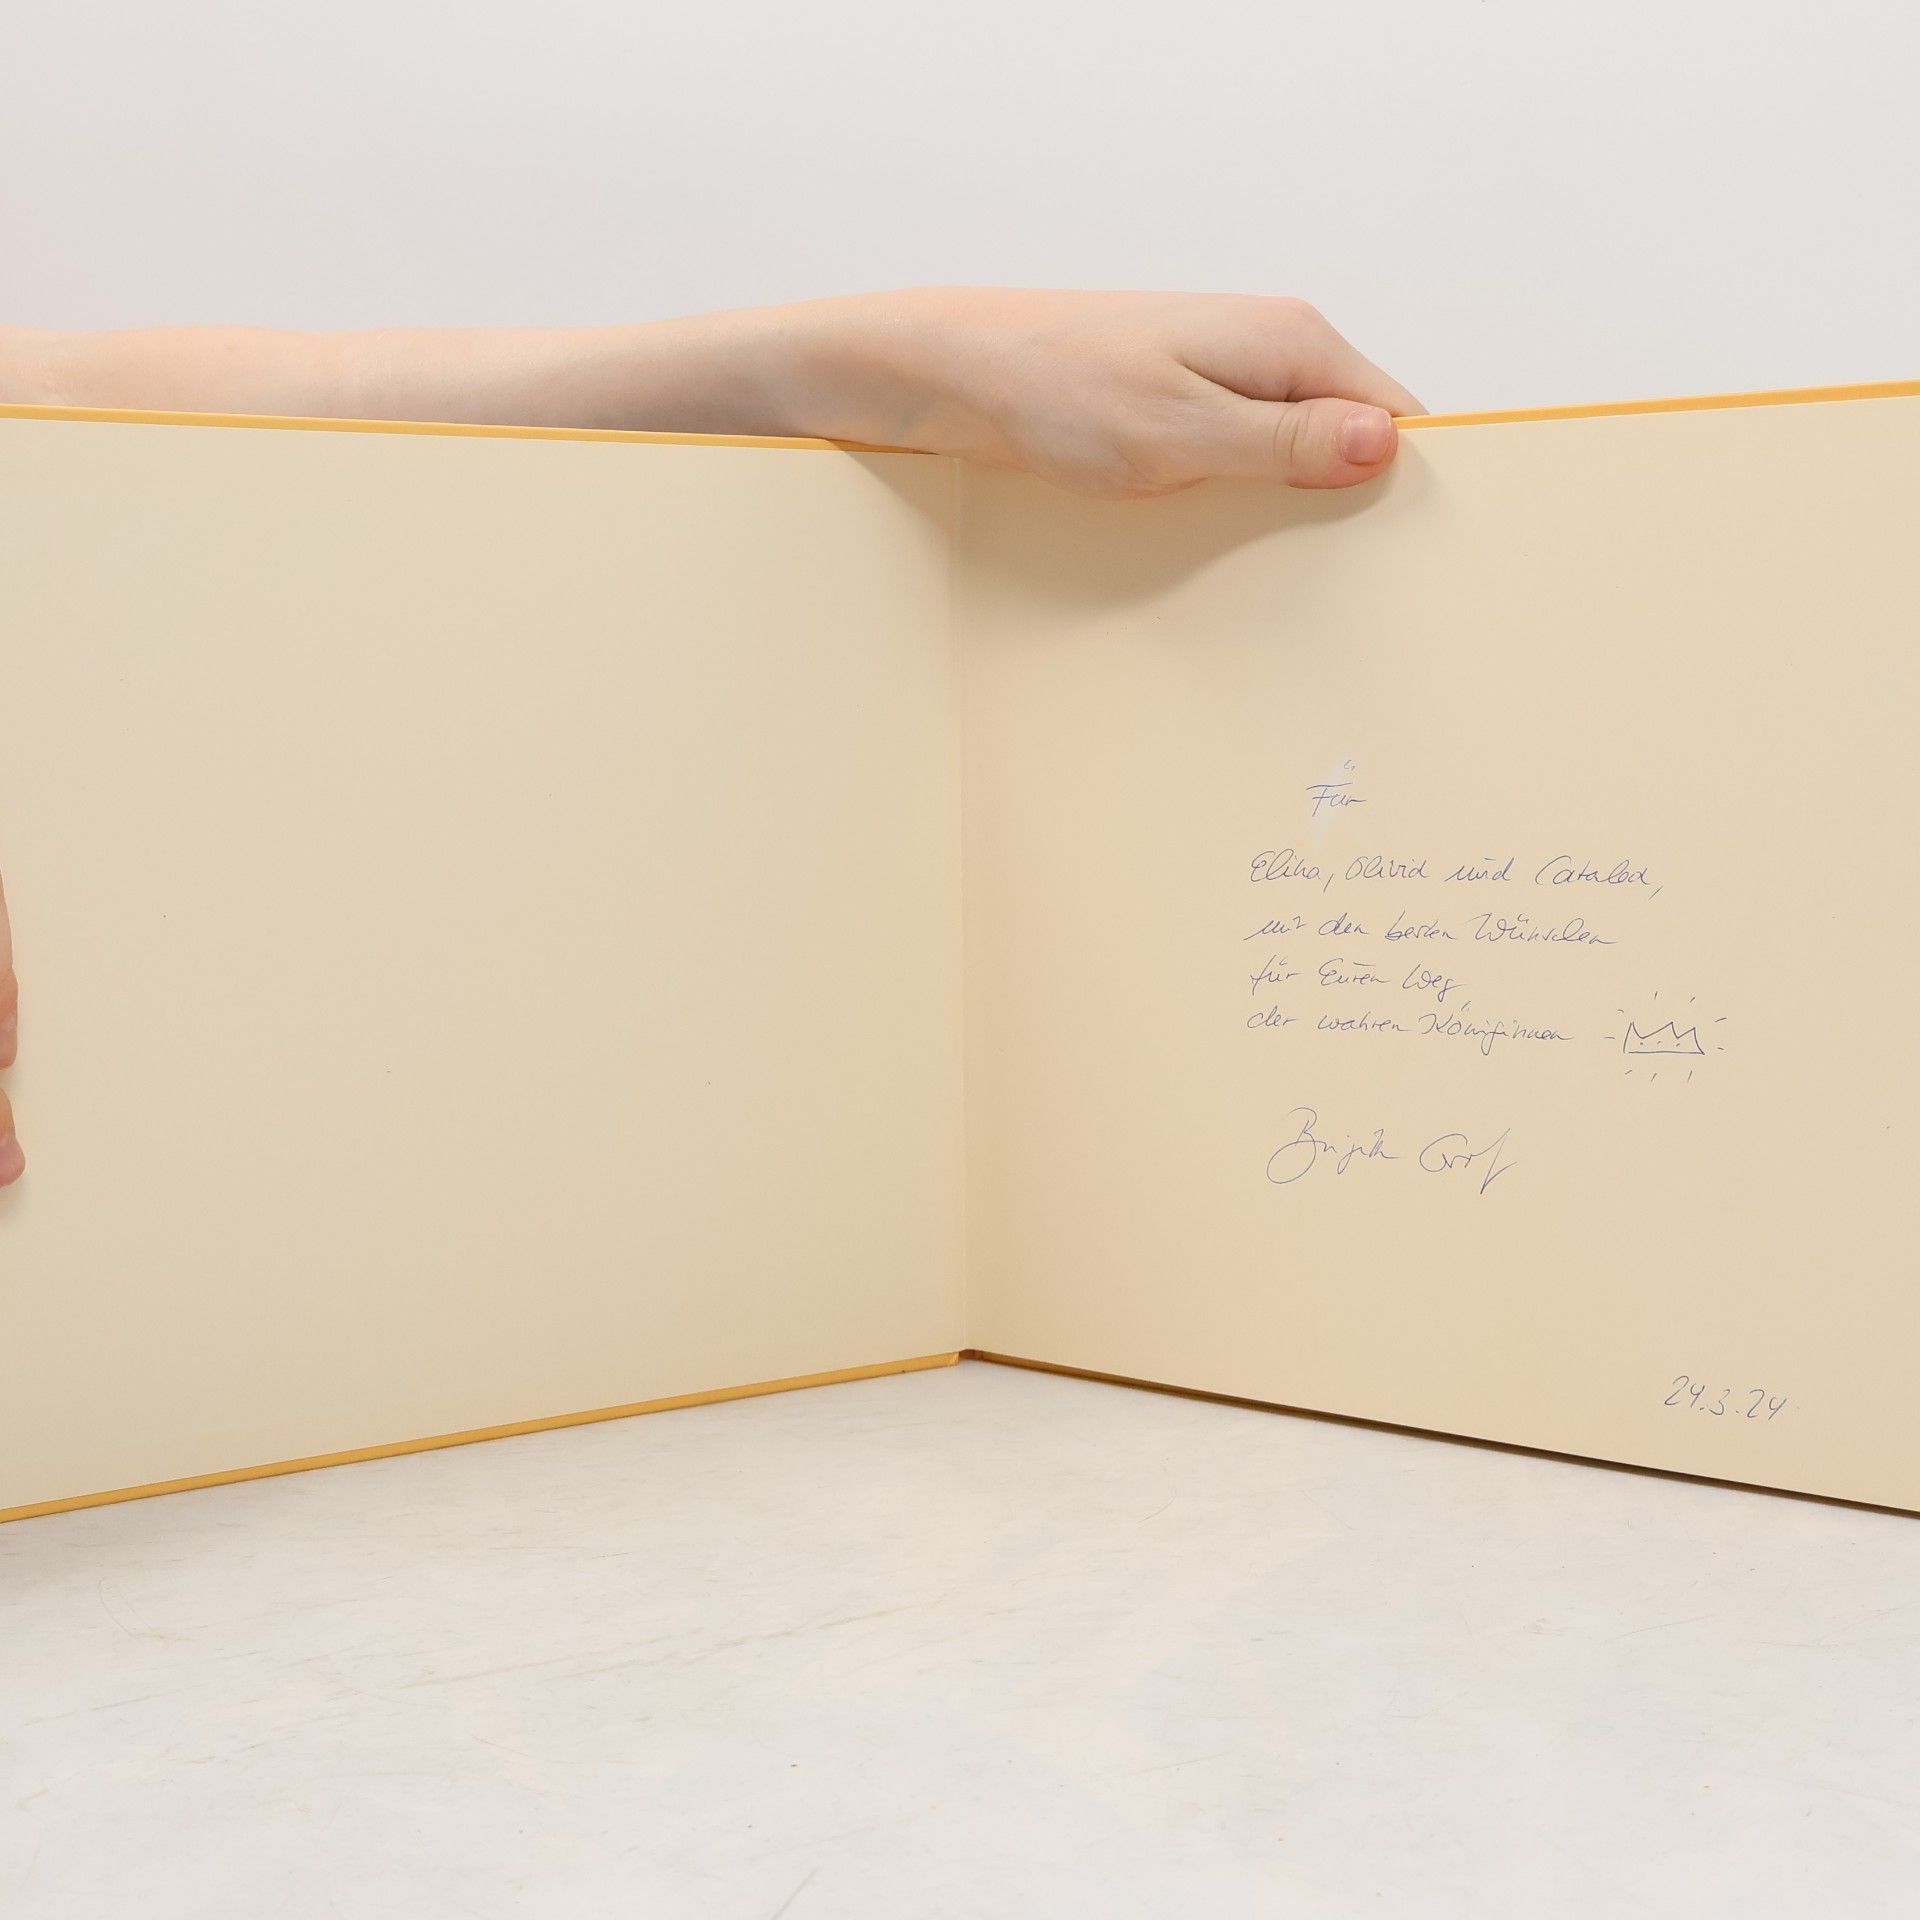 Für
Elina, Olivia und Catalea,
mit den besten Wünschen
für Euren Weg
der wahren Königinnen
Brigitte Graf
24.3.24